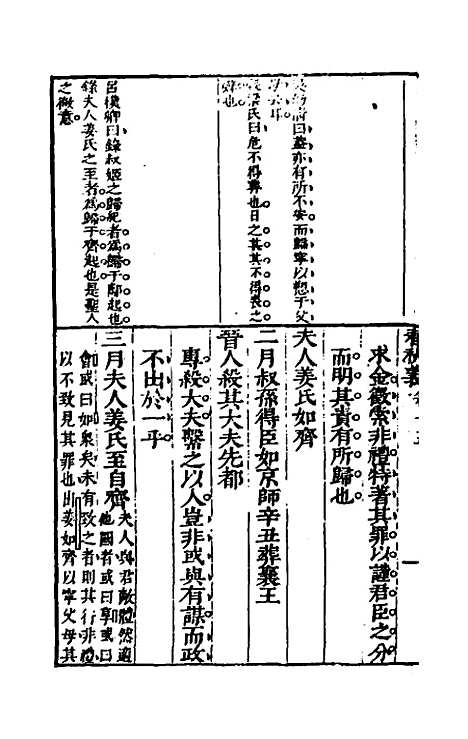 曰蓋亦有所不安而歸寧以愬于父
氏曰危不得葬也日之甚其不得喪之
辭也
呂樸卿曰錄叔姬之歸紀者為歸于酅起也
錄夫人姜氏之至者為歸于齊起也是聖人
之微意
求金徵索非禮特著其罪以謹君臣之分
而明其責有所歸也
夫人姜氏如齊
二月叔孫得臣如京師辛丑葬襄王
晉人殺其大夫先都
專殺大夫繫之以人豈非或與有謀而政
不出於一乎
三月夫人姜氏至自齊
夫人與君敵體然適
他國者或曰享或曰
會或曰如衆矣未有致之者則其行非禮
以不致見其罪也出姜如齊以寧父母其